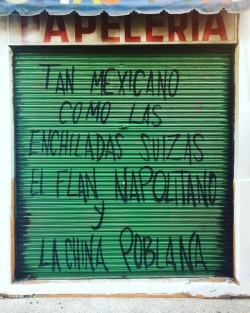 PAPELERIA
TAN MEXICANO
COMO LAS
ENCHILADAS SUIZAS
EL FLAN NAPOLITANO
Y
LA CHINA POBLANA